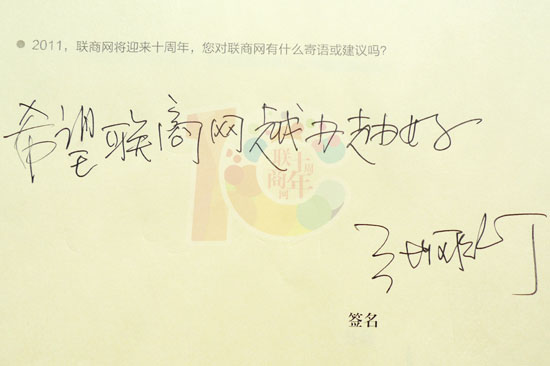 2011，联商网将迎来十周年，您对联商网有什么寄语或建议吗？
希望联商网越办越好
联商网
十周年
签名